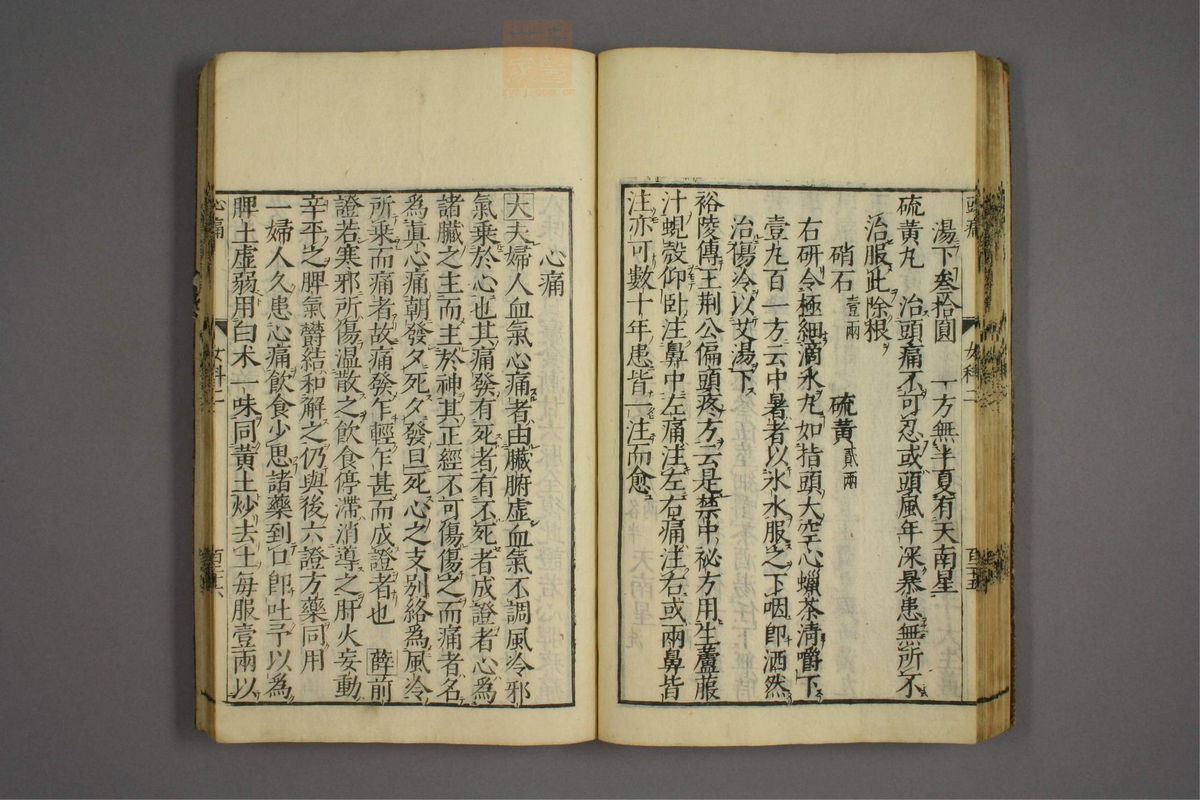 頭痛
女科二
湯下叁拾圓　一方無半夏有天南星
硫黃丸　治頭痛不可忍或頭風年深暴患無所不
治服此除根
硝石壹兩　硫黃貳兩
右研令極細滴水丸如指頭大空心蠟茶清嚼下
壹丸百一方云中暑者以氷水服之下咽卽洒然
治傷冷以艾湯下
裕陵傳王荊公偏頭疼方云是禁中祕方用生蘆菔
汁蜆殼仰卧注鼻中左痛注左右痛注右或兩鼻皆
注亦可數十年患皆一注而愈
心痛
大夫婦人血氣心痛者由臟腑虛血氣不調風冷邪
氣乗於心也其痛發有死者有不死者成證者心爲
諸臟之主而主於神其正經不可傷傷之而痛者名
爲眞心痛朝發夕死夕發旦死心之支別絡爲風冷
所乗而痛者故痛發乍輕乍甚而成證者也　薛前
證若寒邪所傷温散之飲食停滯消導之肝火妄動
辛平之脾氣欝結和解之仍與後六證方藥同用
一婦人久患心痛飲食少思諸藥到口卽吐予以爲
脾土虛弱用白朮一味同黃土炒去土每服壹兩以
心痛
女科二